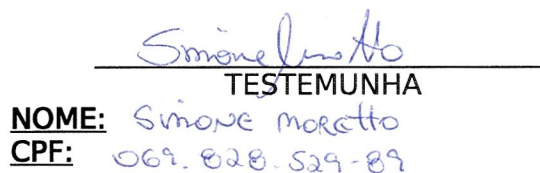 Simone Moretto
TESTEMUNHA
NOME: SIMONE MORETTO
CPF: 069.828.529-89